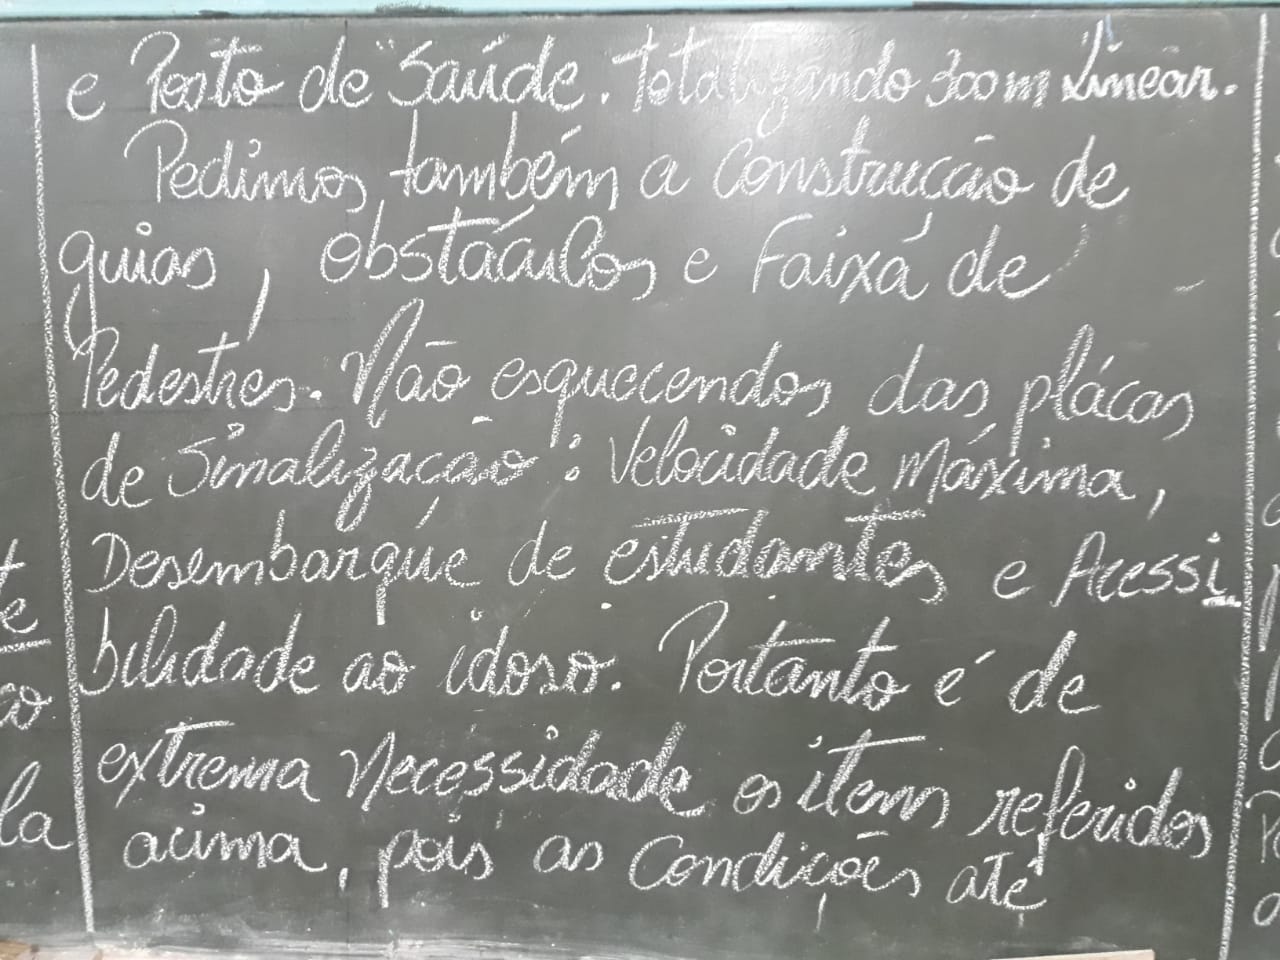 e Posto de Saúde. Totalizando 300m Linear.
Pedimos também a Construção de
guias, obstáculos e Faixa de
Pedestres. Não esquecendos das plácas
de Sinalização: Velocidade Máxima,
Desembarque de estudantes e Acessi
bilidade ao idoso. Portanto é de
extrema Necessidade os itens referidos
acima, pois as Condições até